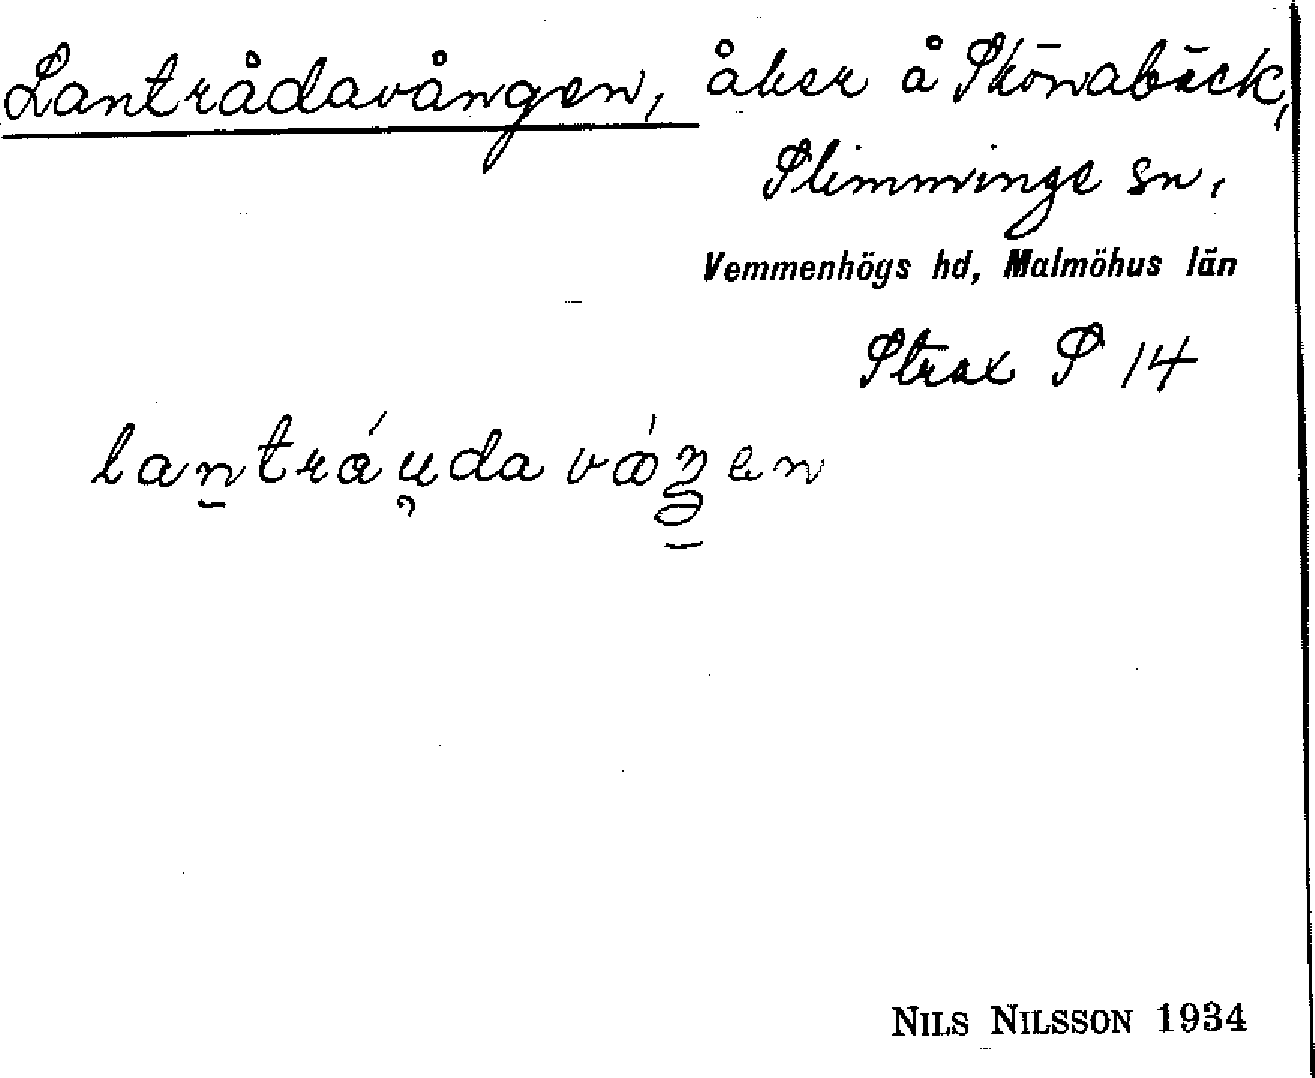 Lantrådavången, åker å Skönabäck,
Slimminge sn,
Vemmenhögs hd, Malmöhus län
Strax S 14
NILS NILSSON 1934